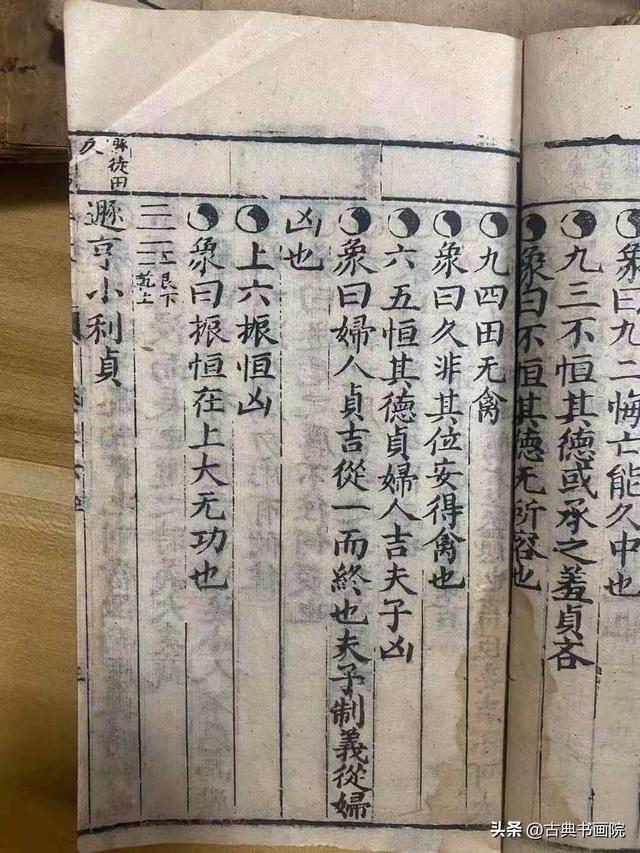 象曰九二悔亡能久中也
九三不恒其德或承之羞貞吝
象曰不恒其德无所容也
九四田无禽
象曰久非其位安得禽也
六五恒其德貞婦人吉夫子凶
象曰婦人貞吉從一而終也夫子制義從婦
凶也
上六振恒凶
象曰振恒在上大无功也
艮下
乾上
遯亨小利貞
头条 @古典书画院